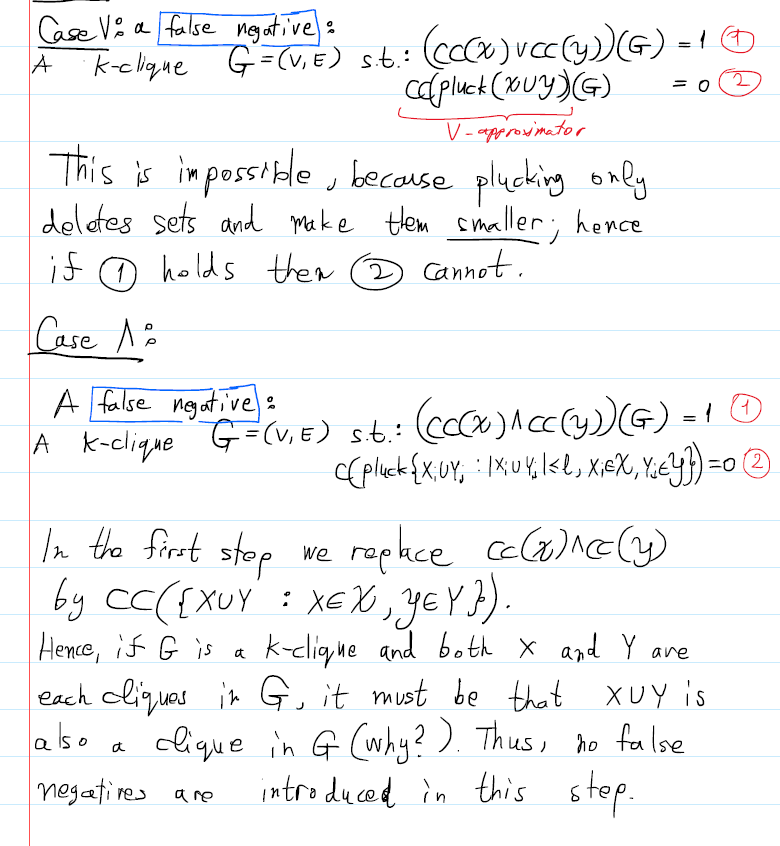 Case V: a false negative:
A k-clique G=(V,E) s.t.: (CC(X)∨CC(Y))(G) = 1 ①
CC(pluck(X∪Y)(G) = 0 ②
V-approximator
This is impossible, because plucking only
deletes sets and make them smaller; hence
if ① holds then ② cannot.
Case ∧:
A false negative:
A k-clique G=(V,E) s.t.: (CC(X)∧CC(Y))(G) = 1 ①
C(pluck{Xᵢ∪Yⱼ : |Xᵢ∪Yⱼ|≤l, Xᵢ∈X, Yⱼ∈Y})=0 ②
In the first step we replace CC(X)∧CC(Y)
by CC({X∪Y : X∈X, Y∈Y}).
Hence, if G is a k-clique and both X and Y are
each cliques in G, it must be that X∪Y is
also a clique in G (why?). Thus, no false
negatives are introduced in this step.